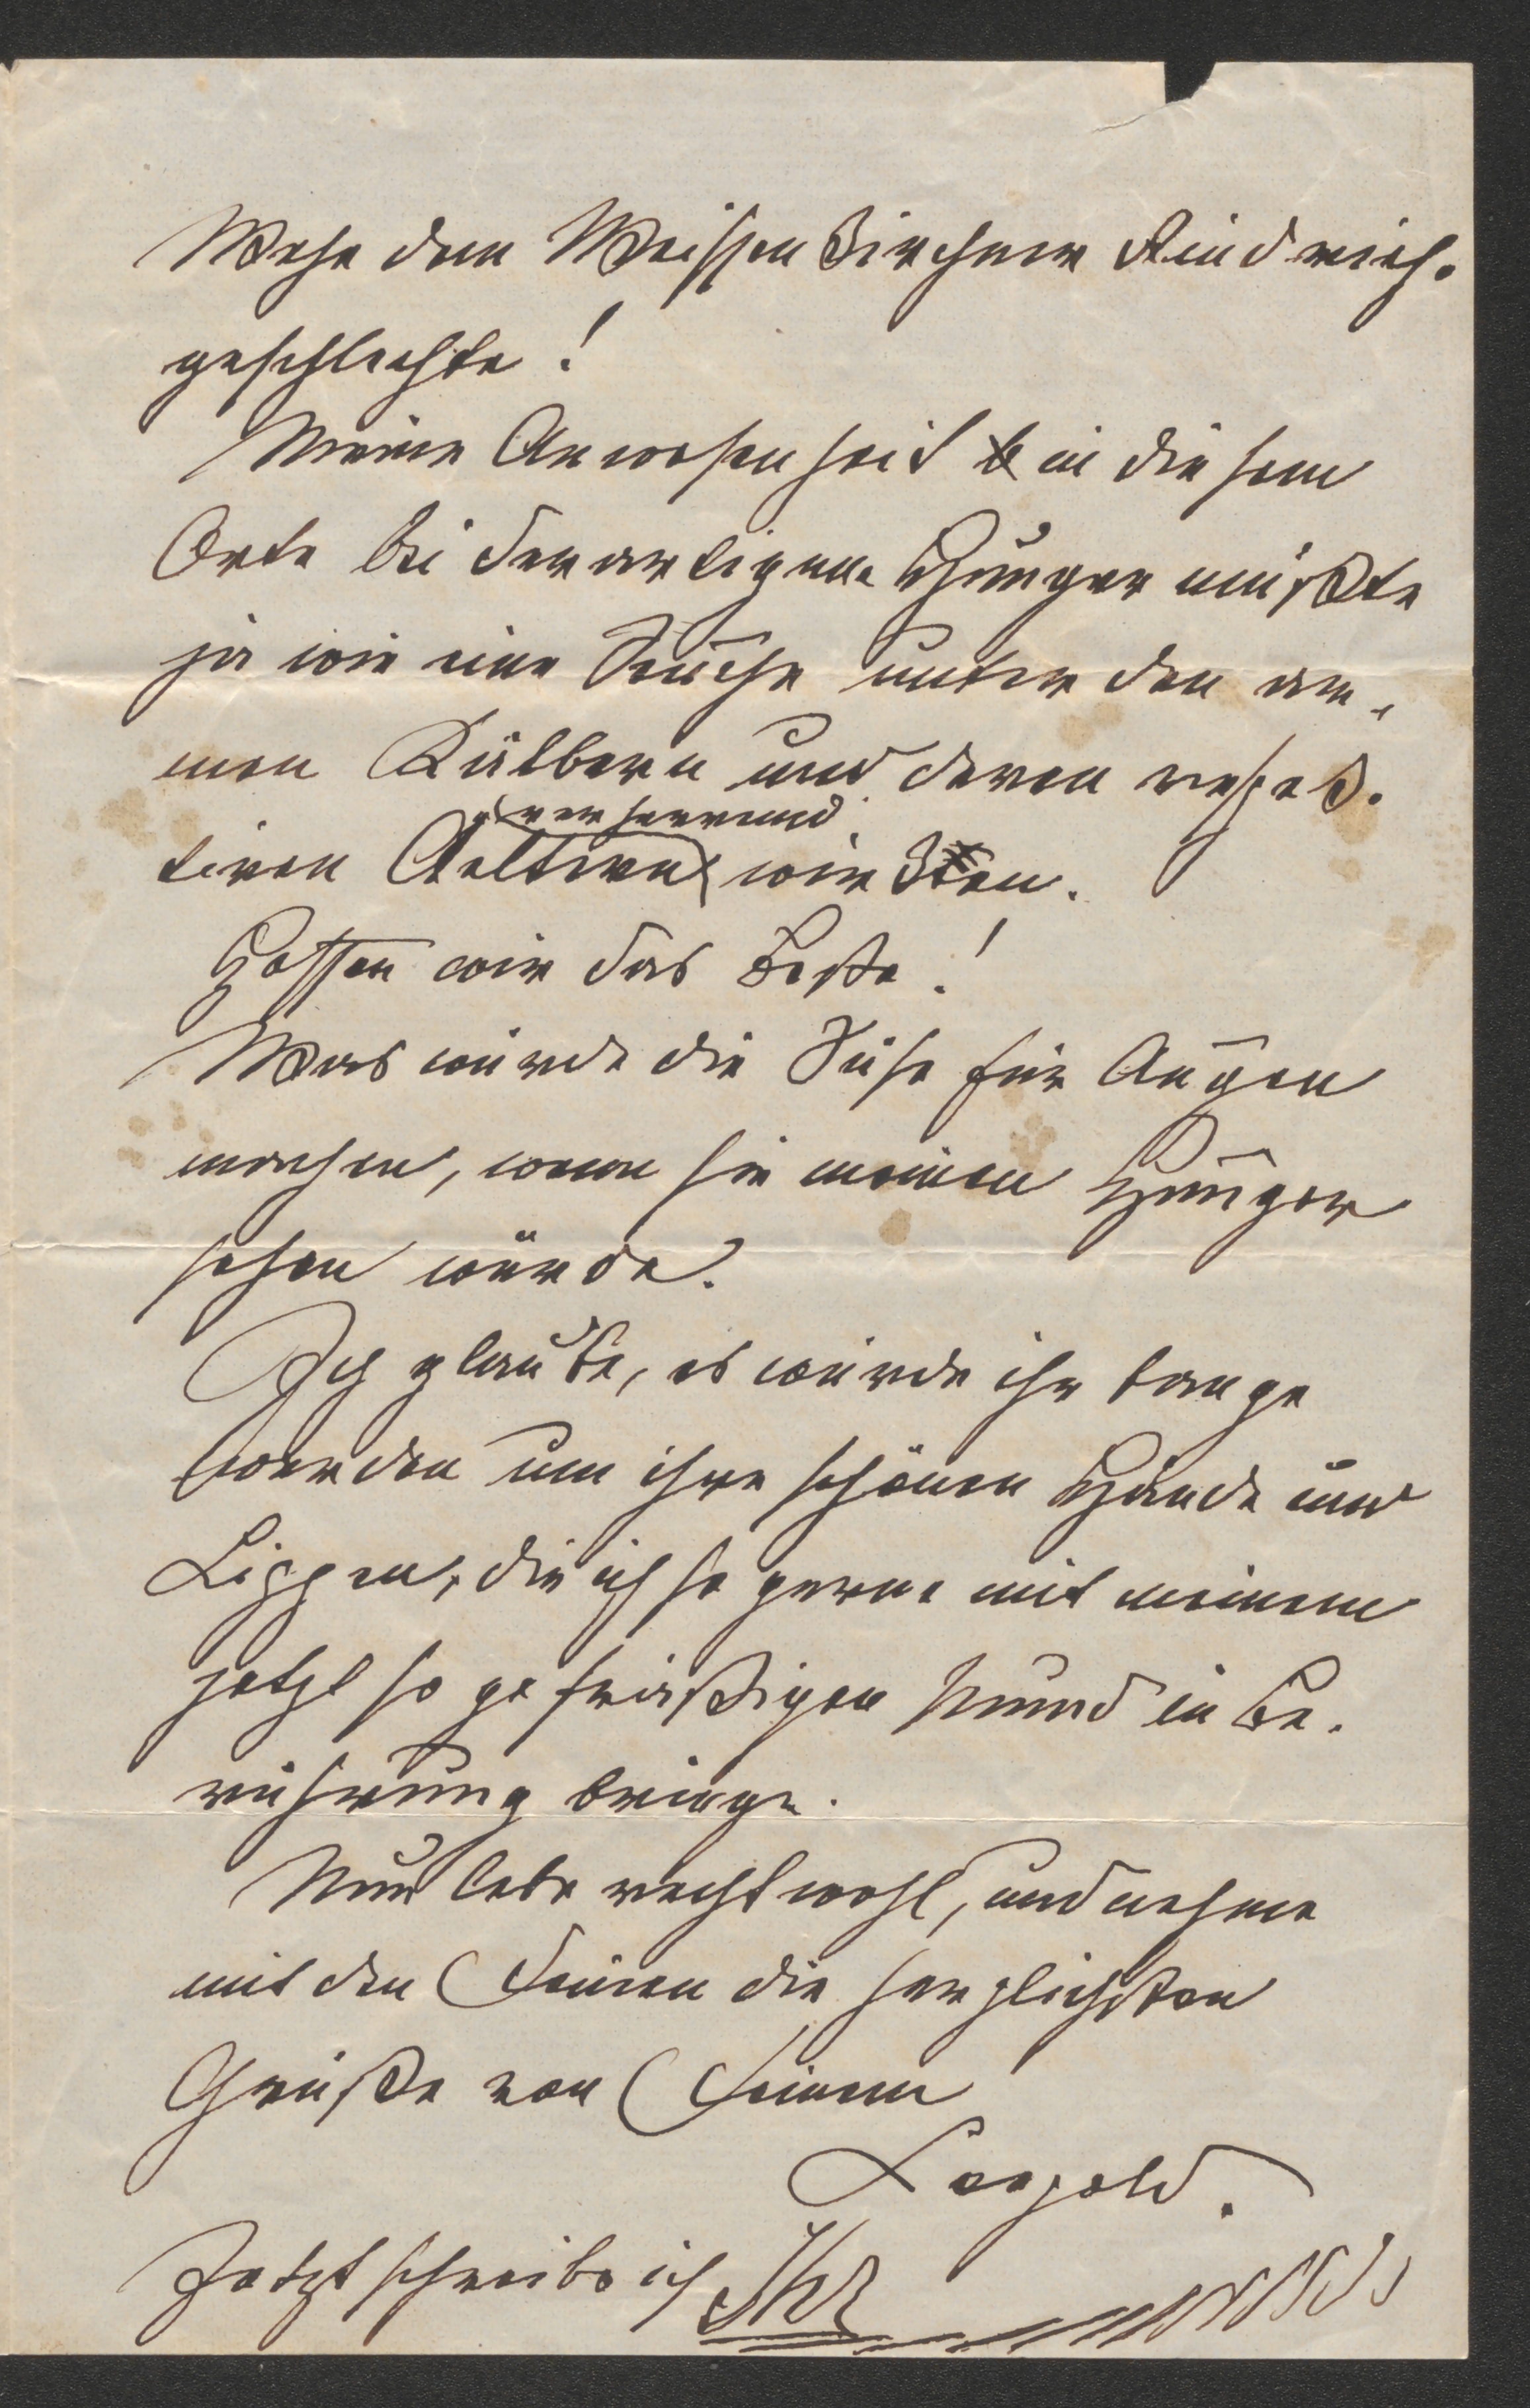 Wehe dem Weissenkirchner Rindvieh-
geschlechte!
Meine Anwesenheit in diesem
Orte bei derartigem Hunger müßte
ja wie eine Seuche unter den ar-
men Kälbern und deren respek-
tiven Aeltern verheerend wirken.
Hoffen wir das Beste!
Was würde die Süße für Augen
machen, wenn sie meinen Hunger
sehen würde.
Ich glaube, es würde ihr bange
werden um ihre schönen Hände und
Lippen, die ich so gerne mit meinem
jetzt so gefräßigen Mund in Be-
rührung bringe.
Nun lebe recht wohl, und nehme
mit den Deinen die herzlichsten
Grüße von Deinem
Leopold.
Jetzt schreibe ich Ihr